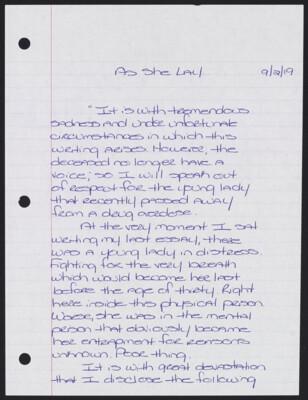 As She Lay 9/2/19
"It is with tremendous
sadness and under unfortunate
circumstances in which this
writing arises. However, the
deceased no longer have a
voice; so I will speak out
of respect for the young lady
that recently passed away
from a drug overdose.
At the very moment I sat
writing my last essay, there
was a young lady in distress.
Fighting for the very breath
which would become her last
before the age of thirty. Right
here inside this physical person.
Worse, she was in the mental
person that obviously became
her entrapment for reasons
unknown. Poor thing.
It is with great devastation
that I disclose the following